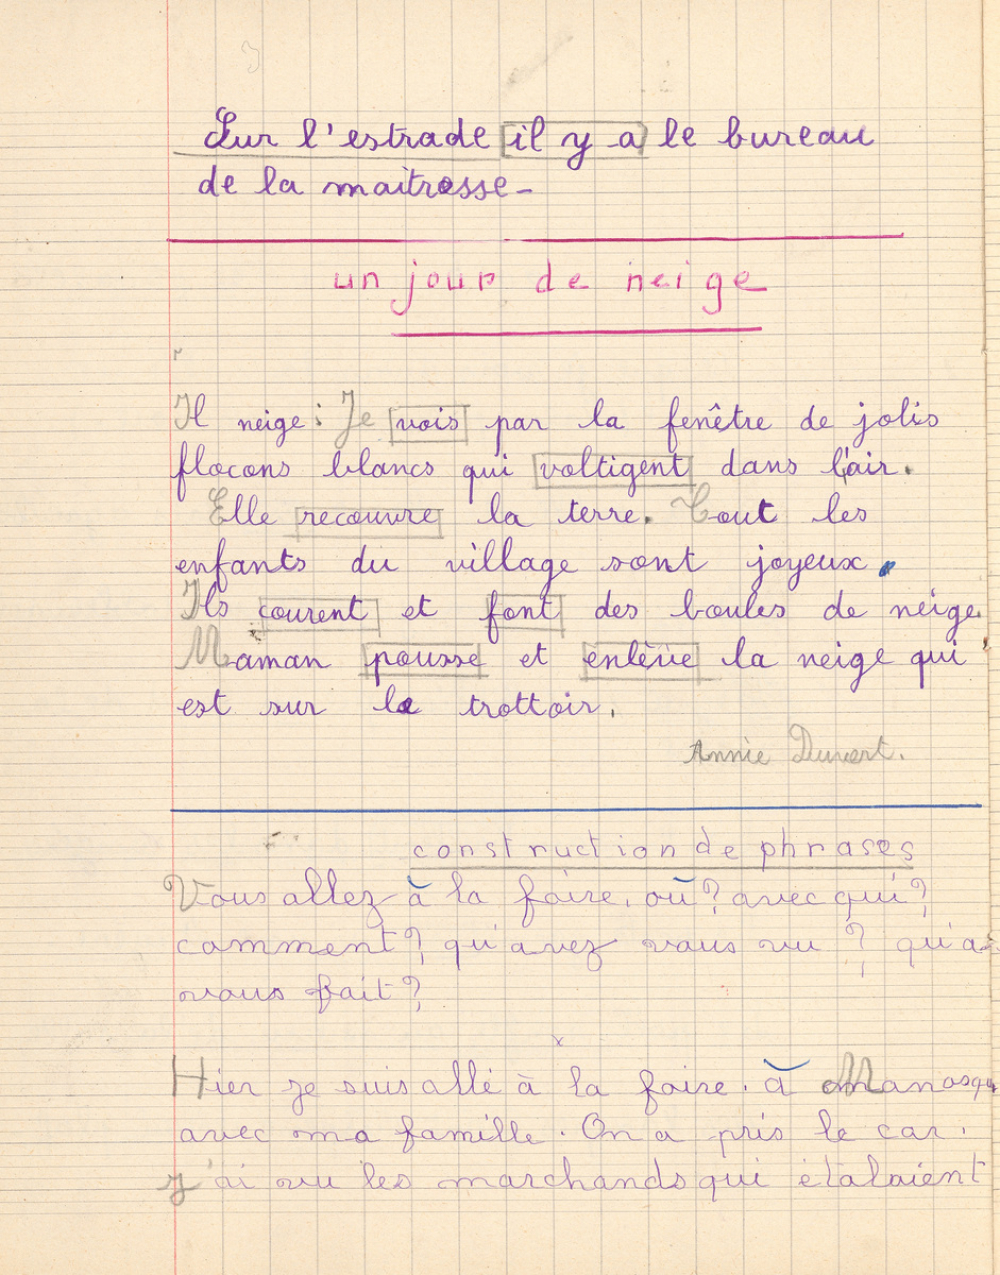 Sur l'estrade il y a le bureau
de la maitresse_
un jour de neige
Il neige : Je vois par la fenêtre de jolis
flocons blancs qui voltigent dans l'air.
Elle recouvre la terre. Tout les
enfants du village sont joyeux.
Ils courent et font des boules de neige.
Maman pousse et enlève la neige qui
est sur le trottoir.
Annie Duvert.
construction de phrases
Vous allez à la foire. où? avec qui?
comment? qu'avez vous vu ? qu'a
vous fait?
Hier je suis allé à la foire. à Manosque
avec ma famille. On a pris le car.
j'ai vu les marchands qui étalaient